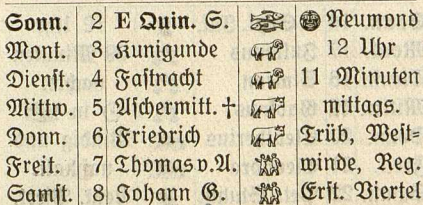 Sonn. 2 E Quin. S. Neumond
Mont. 3 Kunigunde 12 Uhr
Dienst. 4 Fastnacht 11 Minuten
Mittw. 5 Aschermitt. † mittags.
Donn. 6 Friedrich Trüb, West=
Freit. 7 Thomas v. A. winde, Reg.
Samst. 8 Johann G. Erst. Viertel